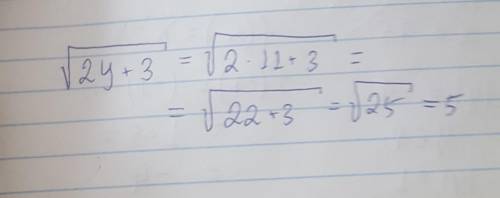 √2y + 3 = √2 · 11 + 3 =
= √22 + 3 = √25 = 5